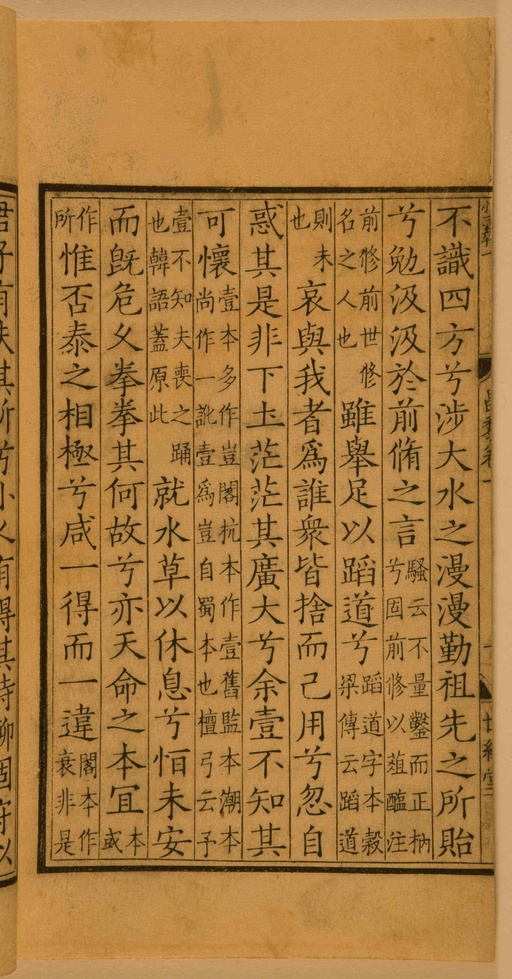 不識四方兮涉大水之漫漫勤祖先之所貽
兮勉汲汲於前脩之言騷云不量鑿而正枘兮固前修以葅醢注
前修前世修名之人也雖舉足以蹈道兮蹈道字本穀梁傳云蹈道
則未也哀與我者爲誰衆皆捨而己用兮忽自
惑其是非下土茫茫其廣大兮余壹不知其
可懷壹本多作豈閣杭本作壹舊監本潮本尚作一訛壹爲豈自蜀本也檀弓云予
壹不知夫喪之踊也韓語蓋原此就水草以休息兮恒未安
而既危久拳拳其何故兮亦天命之本宜本或
作所惟否泰之相極兮咸一得而一違閣本作衰非是
君子有失其所兮小人有得其時聊固守以